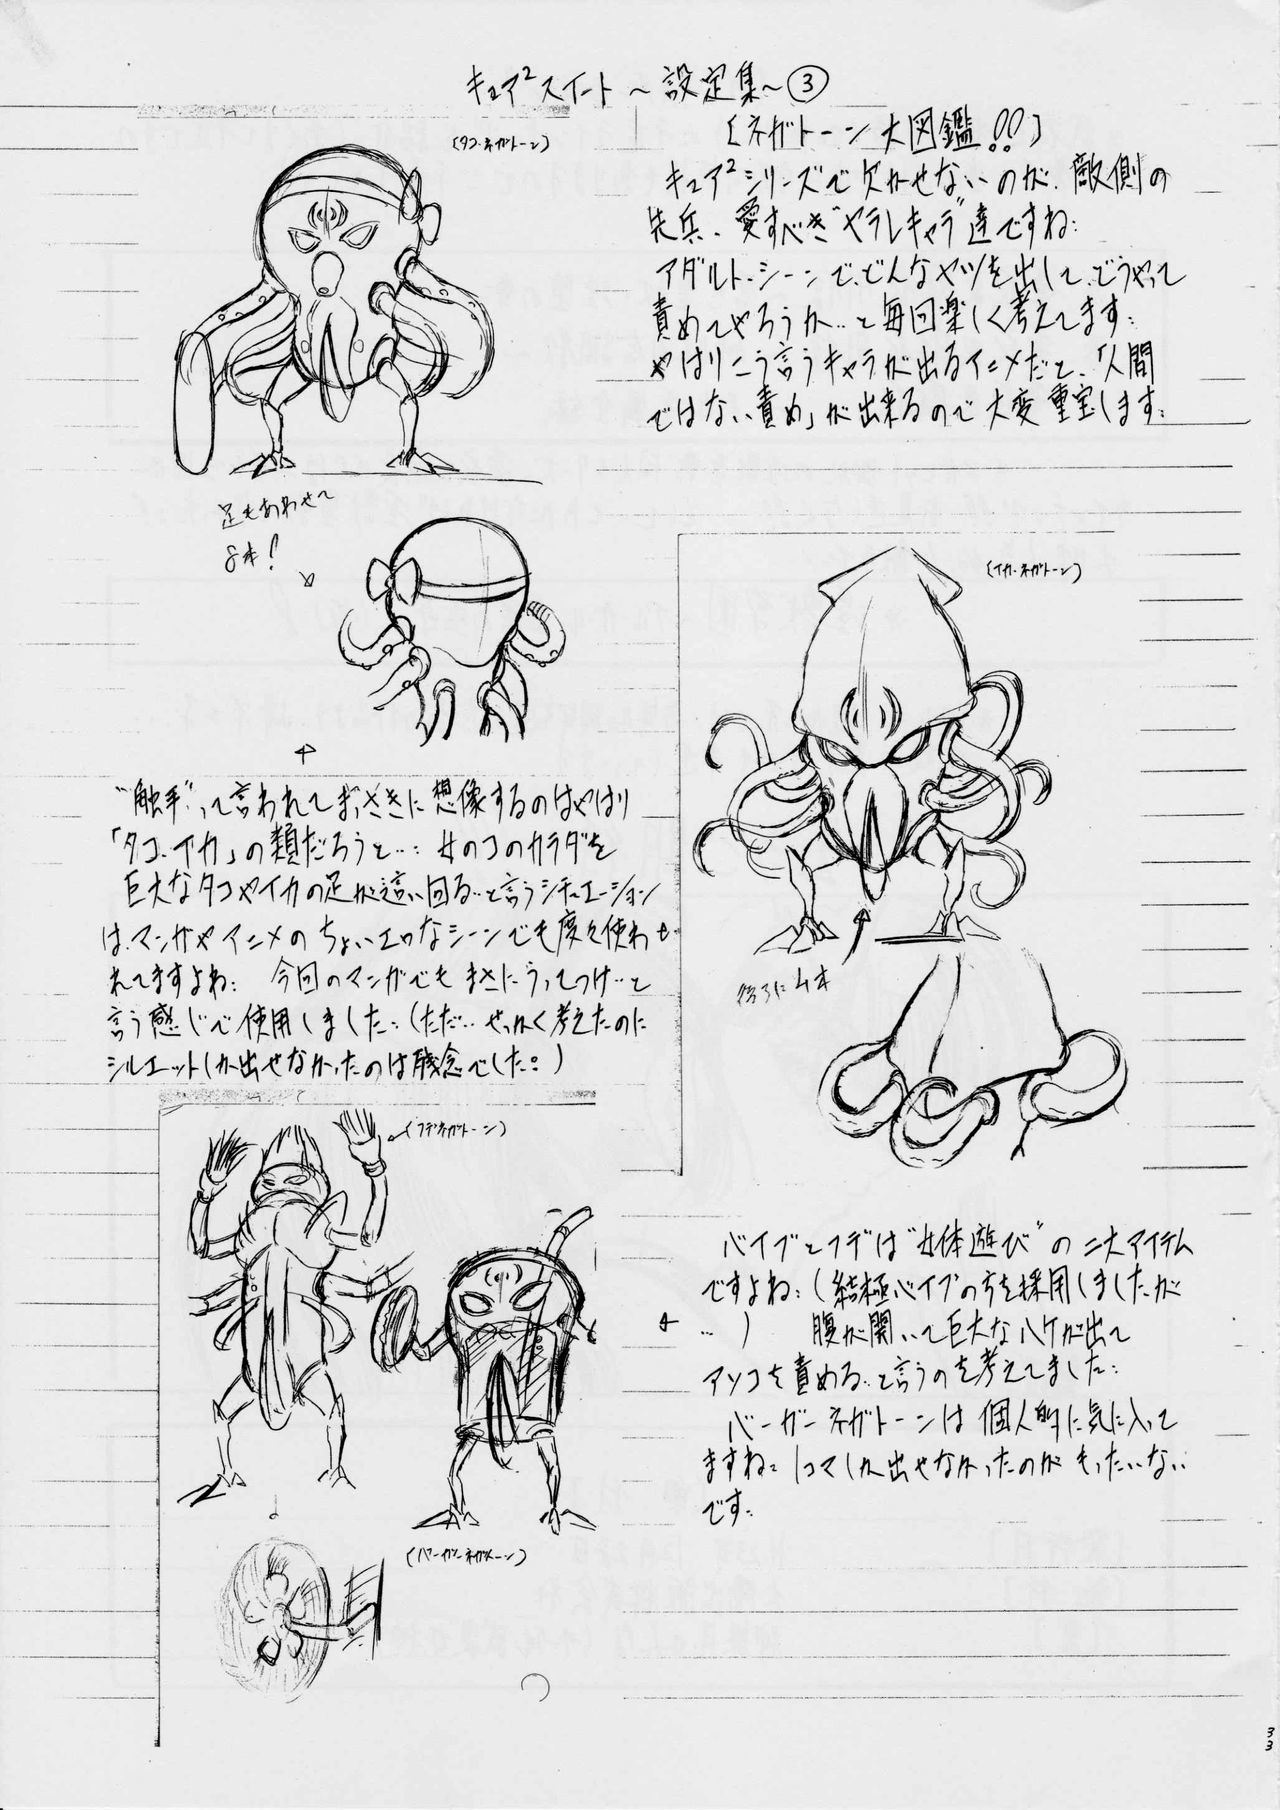 キュア²スイート ～設定集～③
(タコ・ネガトーン)
〔ネガトーン大図鑑!!〕
キュア²シリーズで欠かせないのが、敵側の
先兵、愛すべき"ヤラレキャラ"達ですね。
アダルト・シーンで、どんなヤツを出して、どうやって
責めてやろうか…と毎回楽しく考えてます。
やはりこう言うキャラが出るアニメだと、「人間
ではない責め」が出来るので大変重宝します。
足もあわせて
8本!
(イカ・ネガトーン)
後ろに4本
"触手"って言われてまっさきに想像するのはやはり
「タコ、イカ」の類だろうと…。女のコのカラダを
巨大なタコやイカの足が這い回る…と言うシチュエーション
は、マンガやアニメのちょいエロなシーンでも度々使わ
れてますよね。 今回のマンガでもまさにうってつけ…と
言う感じで使用しました。(ただ…せっかく考えたのに
シルエットしか出せなかったのは残念でした。)
(フデネガトーン)
(バーガーネガトーン)
バイブとフデは"女体遊び"の二大アイテム
ですよね。(結極バイブの方を採用しましたが
…) 腹が開いて巨大なハケが出て
アソコを責める…と言うのを考えてました。
バーガーネガトーンは個人的に気に入って
ますね。1コマしか出せなかったのがもったいない
です。
33